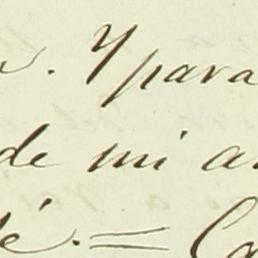 . Y para
de mi a
é. = Ca